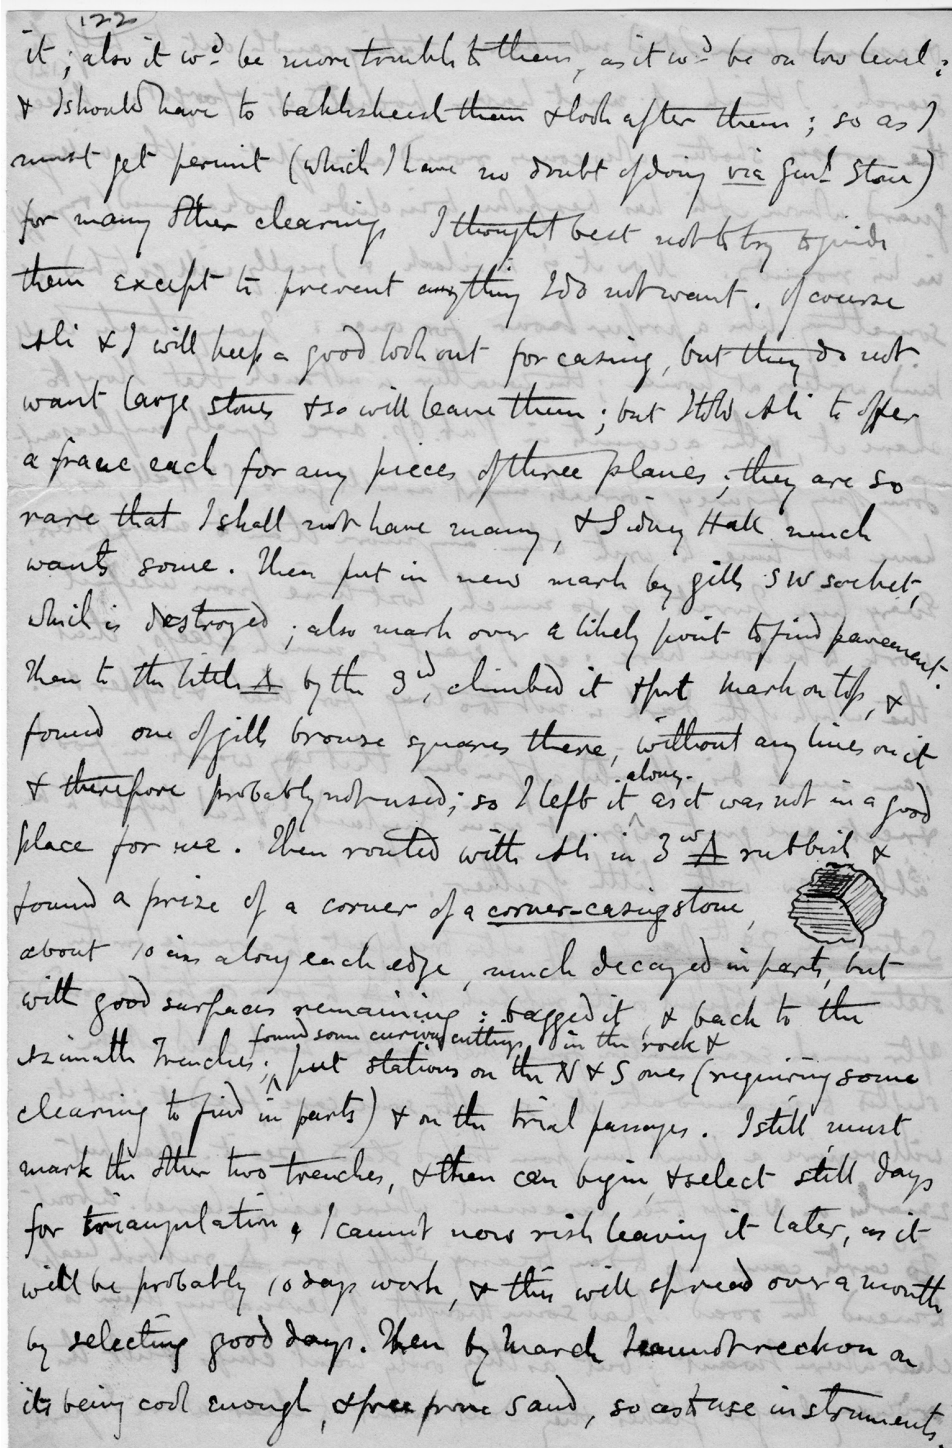 122
it; also it wd. be more trouble to them, as it wd. be on low level;
& I should have to bakhsheesh them & look after them; so as I
must get permit (which I have no doubt of doing via Genl. Stone)
for many other clearings I thought best not to try to guide
them except to prevent anything I do not want. Of course
Ali & I will keep a good look out for casing, but they do not
want large stones & so will leave them; but I told Ali to offer
a franc each for any pieces of three planes; they are so
rare that I shall not have many, & Sidney Hall much
wants some. Then put in new mark by Gill's SW socket,
which is destroyed; also mark over a likely point to find pavement.
Then to the little Δ by the 3rd, climbed it & put mark on top, &
found one of Gill's bronze squares there, without any lines on it
& therefore probably not used; so I left it alone, as it was not in a good
place for me. Then routed with Ali in 3rd Δ rubbish &
found a prize of a corner of a corner-casing stone,
about 10 ins along each edge, much decayed in parts, but
with good surfaces remaining: bagged it, & back to the
Azimuth Trenches; found some curious cuttings in the rock & put stations on the N & S ones (requiring some
clearing to find in parts) & on the trial passages. I still must
mark the other two trenches, & then can begin, & select still days
for triangulation. I cannot now risk leaving it later, as it
will be probably 10 days work, & this will spread over a month
by selecting good days. Then by March I cannot reckon on
its being cool enough, & free from sand, so as to use instruments